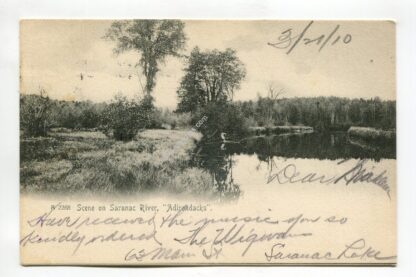 3/21/10
A 7208 Scene on Saranac River, "Adirondacks".
Dear
Have received the music you so
kindly ordered The Wigwam
63 Main St Saranac Lake